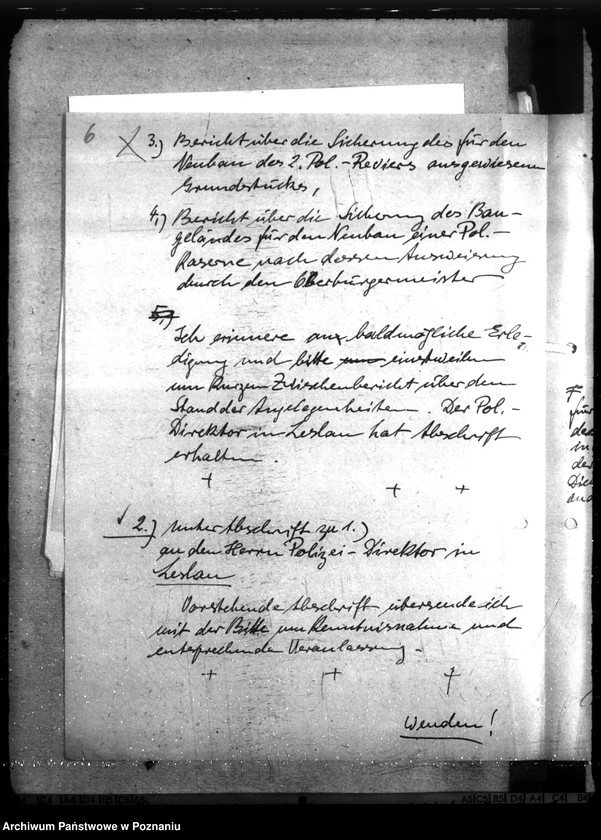 6
3.) Bericht über die Sicherung des für den
Neubau des 2. Pol.-Reviers ausgewiesenen
Grundstückes,
4.) Bericht über die Sicherung des Bau-
geländes für den Neubau einer Pol.-
Kaserne nach dessen Ausweisung
durch den Oberbürgermeister
5.)
Ich erinnere an baldmögliche Erle-
digung und bitte einstweilen
um kurzen Zwischenbericht über den
Stand der Angelegenheiten. Der Pol.-
Direktor in Leslau hat Abschrift
erhalten.
2.) Unter Abschrift zu 1.)
an den Herrn Polizei-Direktor in
Leslau
Vorstehende Abschrift übersende ich
mit der Bitte um Kenntnisnahme und
entsprechende Veranlassung.
Wenden!
für
der
Archiwum Państwowe w Poznaniu